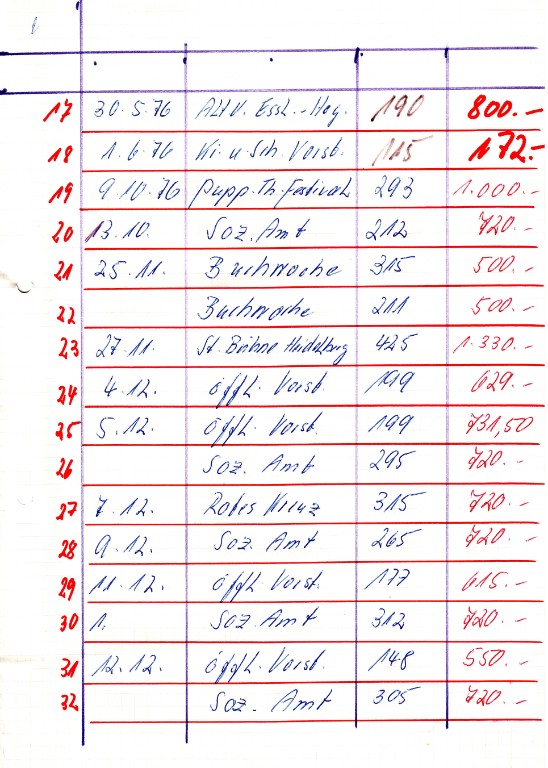 17 30.5.76 Altv. Essl.-Heg. 190 800.-
18 1.6.76 Ki. u Sch. Vorst. 115 172.-
19 9.10.76 Pupp.Th.Festival 293 1.000.-
20 13.10. Soz. Amt 212 720.-
21 25.11. Buchwoche 315 500.-
22 Buchwoche 211 500.-
23 27.11. St. Bühne Heidelberg 425 1.330.-
24 4.12. öffl. Vorst. 199 629.-
25 5.12. öffl. Vorst. 199 731,50
26 Soz. Amt 295 720.-
27 7.12. Rotes Kreuz 315 720.-
28 9.12. Soz. Amt 265 720.-
29 11.12. öffl. Vorst. 177 615.-
30 1. Soz. Amt 312 720.-
31 12.12. öffl. Vorst. 148 550.-
32 Soz. Amt 305 720.-